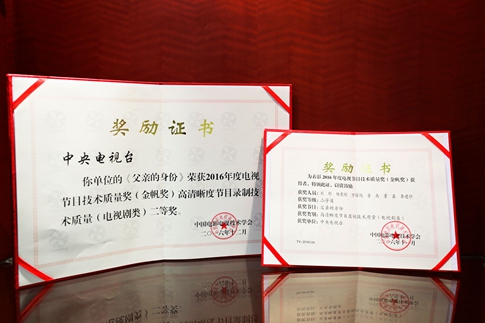 奖励证书
中央电视台
你单位的《父亲的身份》荣获2016年度电视
节目技术质量奖（金帆奖）高清晰度节目录制技
术质量（电视剧类）二等奖。
中国电影电视技术学会
二〇一六年十二月
奖励证书
为表彰2016年度电视节目技术质量奖（金帆奖）获
得者，特颁此证，以资鼓励
获奖人员：
获奖等级：二等奖
获奖节目：父亲的身份
获奖类别：高清晰度节目录制技术质量（电视剧类）
获奖单位：中央电视台
中国电影电视技术学会